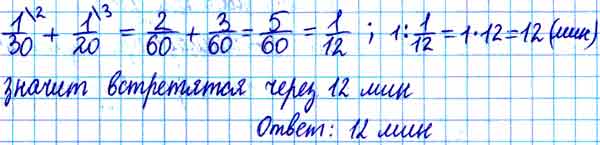 1\2/30 + 1\3/20 = 2/60 + 3/60 = 5/60 = 1/12 ; 1:1/12 = 1·12 = 12 (мин)
значит встретятся через 12 мин
Ответ: 12 мин